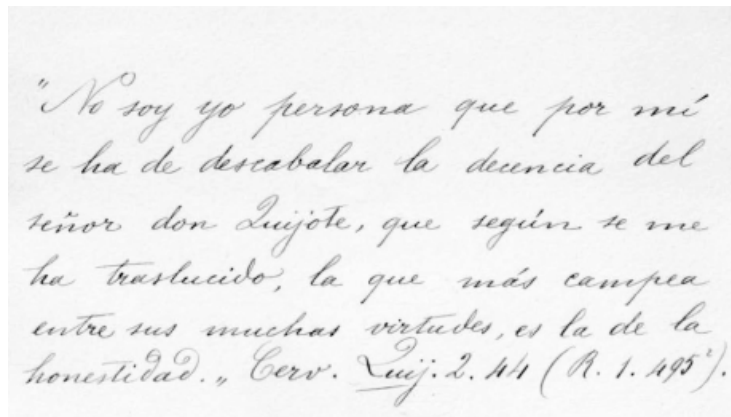 "No soy yo persona que por mí
se ha de descabalar la decencia del
señor don Quijote, que según se me
ha traslucido, la que más campea
entre sus muchas virtudes, es la de la
honestidad.„ Cerv. Quij. 2. 44 (R. 1. 495²).